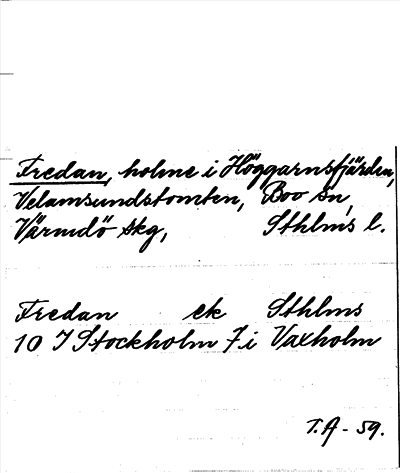 Fredan, holme i Höggarnsfjärden,
Velamsundstomten, Boo sn,
Värmdö skg, Sthlms l.
Fredan ek Sthlms
10 I Stockholm 7 i Vaxholm
T.A - 59.